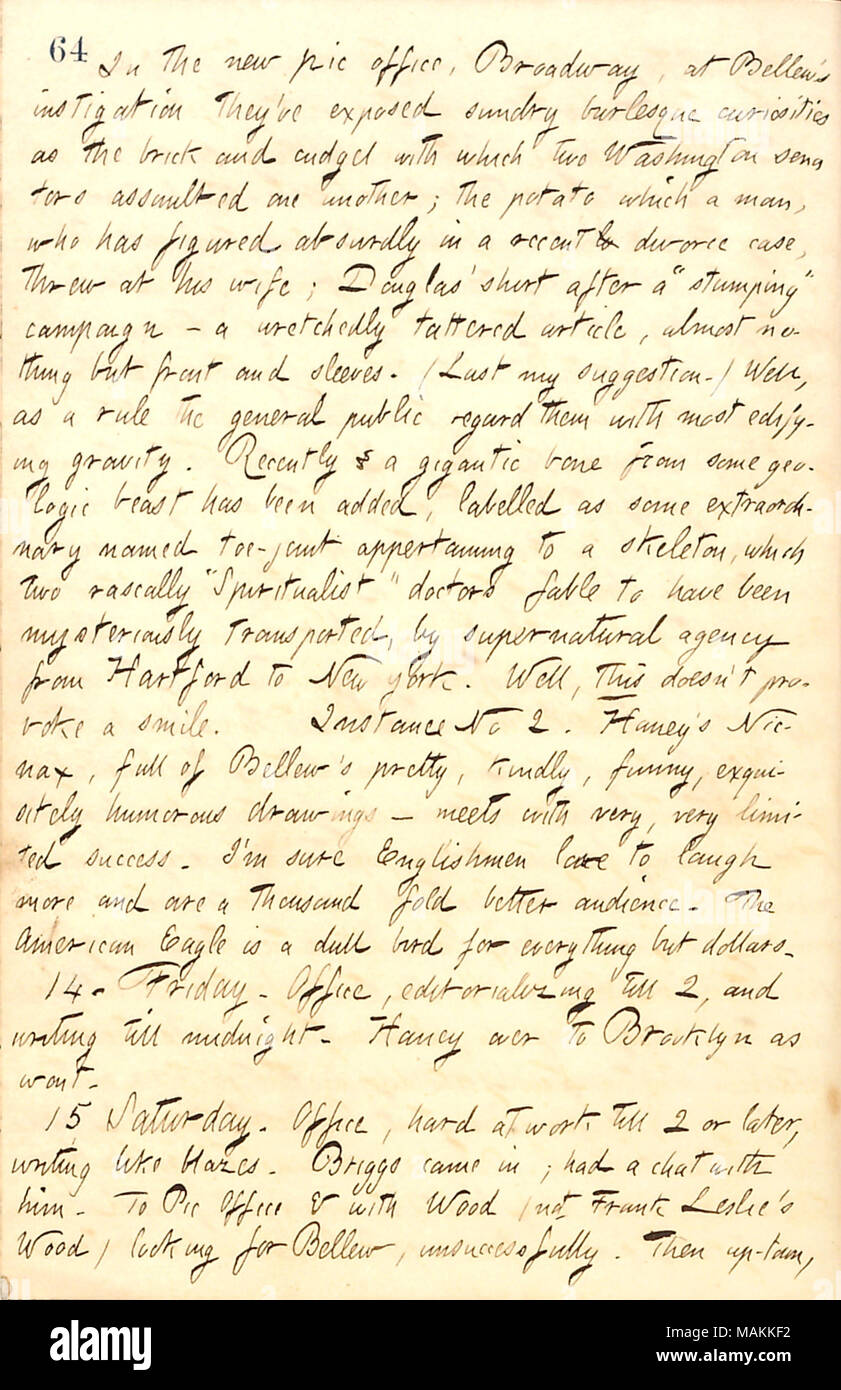 64
In the new pic office, Broadway, at Bellew's
instigation they've exposed sundry burlesque curiosities
as the brick and cudgel with which two Washington sena
tors assaulted one another; the potato which a man,
who has figured absurdly in a recent divorce case,
threw at his wife; Douglas' shirt after a "stumping"
campaign — a wretchedly tattered article, almost no-
thing but front and sleeves. (Last my suggestion.) Well,
as a rule the general public regard them with most edify-
ing gravity. Recently a gigantic bone from some geo-
logic beast has been added, labelled as some extraordi-
nary named toe-joint appertaining to a skeleton, which
two rascally "Spiritualist" doctors fable to have been
mysteriously transported, by supernatural agency
from Hartford to New York. Well, this doesn't pro-
voke a smile. Instance No 2. Haney's Nic-
nax, full of Bellew's pretty, kindly, funny, exqui-
sitely humorous drawings — meets with very, very limi-
ted success. I'm sure Englishmen love to laugh
more and are a thousand fold better audience. The
American Eagle is a dull bird for everything but dollars.
14. Friday. Office, editorializing till 2, and
writing till midnight. Haney over to Brooklyn as
wont.
15 Saturday. Office, hard at work till 2 or later,
writing like blazes. Briggs came in; had a chat with
him. To Pic Office & with Wood (not Frank Leslie's
Wood) looking for Bellew, unsuccessfully. Then up-town,
alamy
Image ID: MAKKF2
www.alamy.com